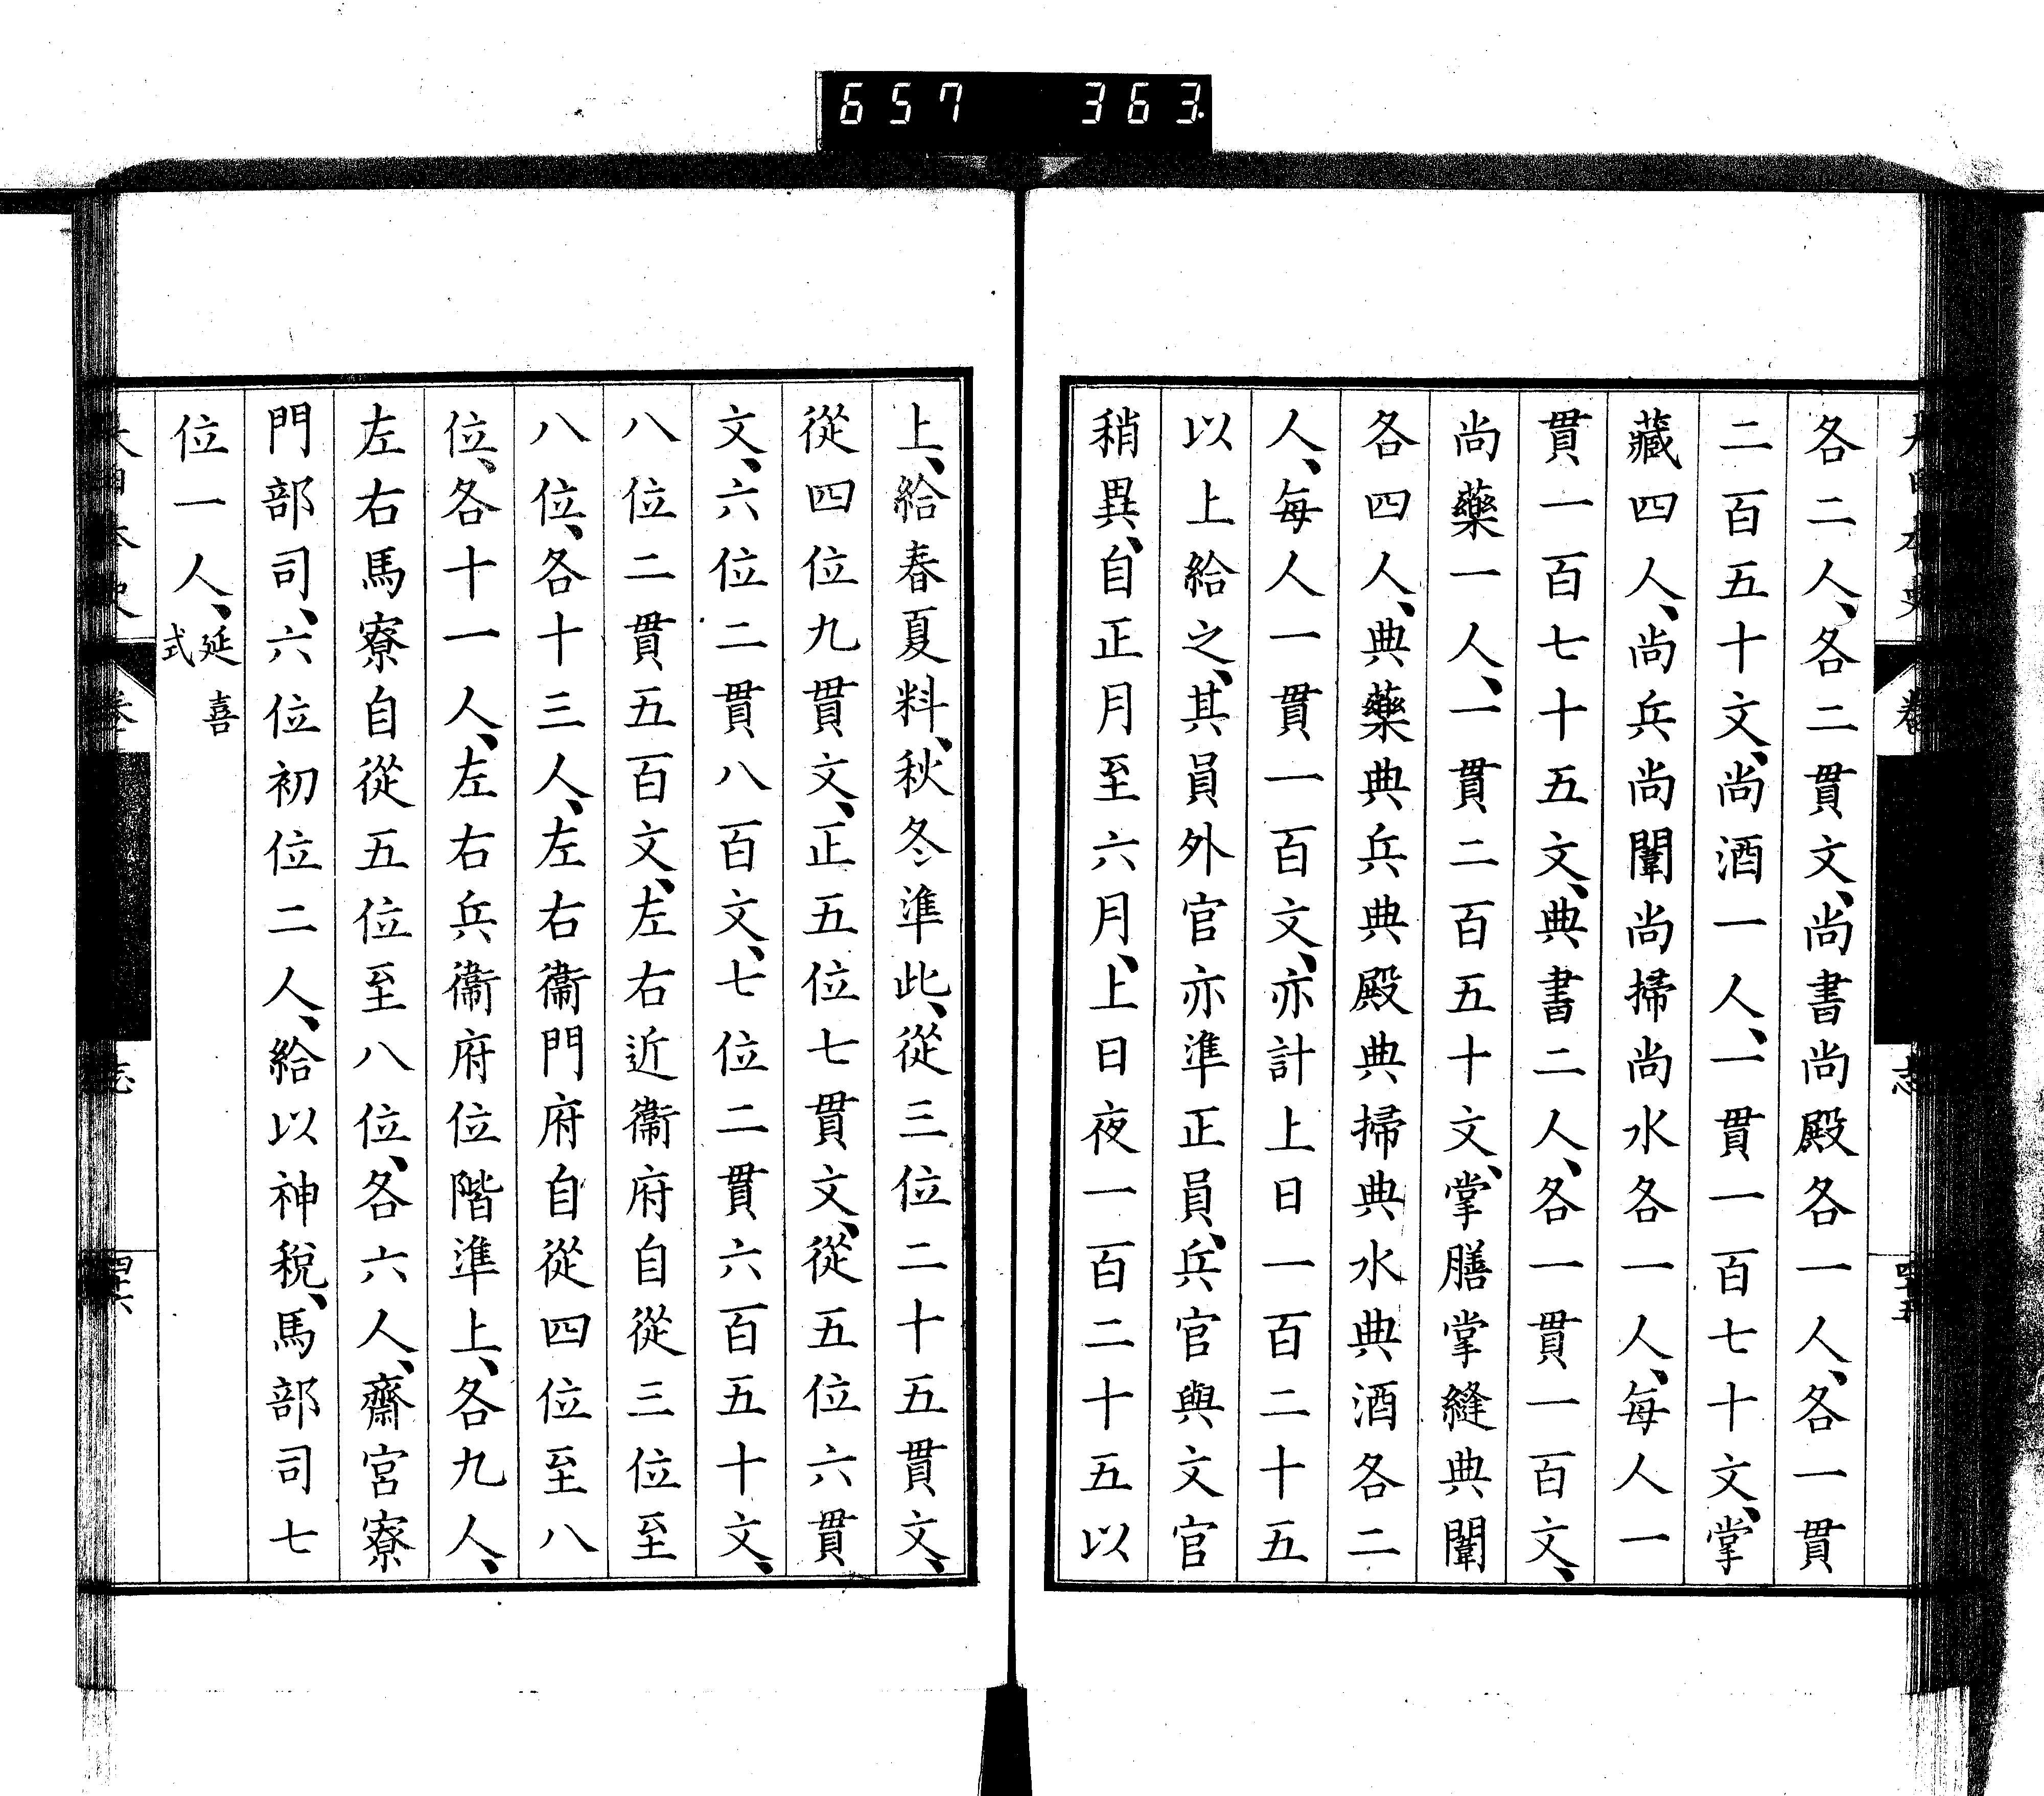 657 363
各二人、各二貫文、尚書尚殿各一人、各一貫
二百五十文、尚酒一人、一貫一百七十文、掌
藏四人、尚兵尚闈尚掃尚水各一人、每人一
貫一百七十五文、典書二人、各一貫一百文、
尚藥一人、一貫二百五十文、掌膳掌縫典闈
各四人、典藥典兵典殿典掃典水典酒各二
人、每人一貫一百文、亦計上日一百二十五
以上給之、其員外官亦準正員、兵官與文官
稍異、自正月至六月、上日夜一百二十五以
上、給春夏料、秋冬準此、從三位二十五貫文、
從四位九貫文、正五位七貫文、從五位六貫
文、六位二貫八百文、七位二貫六百五十文、
八位二貫五百文、左右近衞府自從三位至
八位、各十三人、左右衞門府自從四位至八
位、各十一人、左右兵衞府位階準上、各九人、
左右馬寮自從五位至八位、各六人、齋宮寮
門部司、六位初位二人、給以神稅、馬部司七
位一人、延喜
式